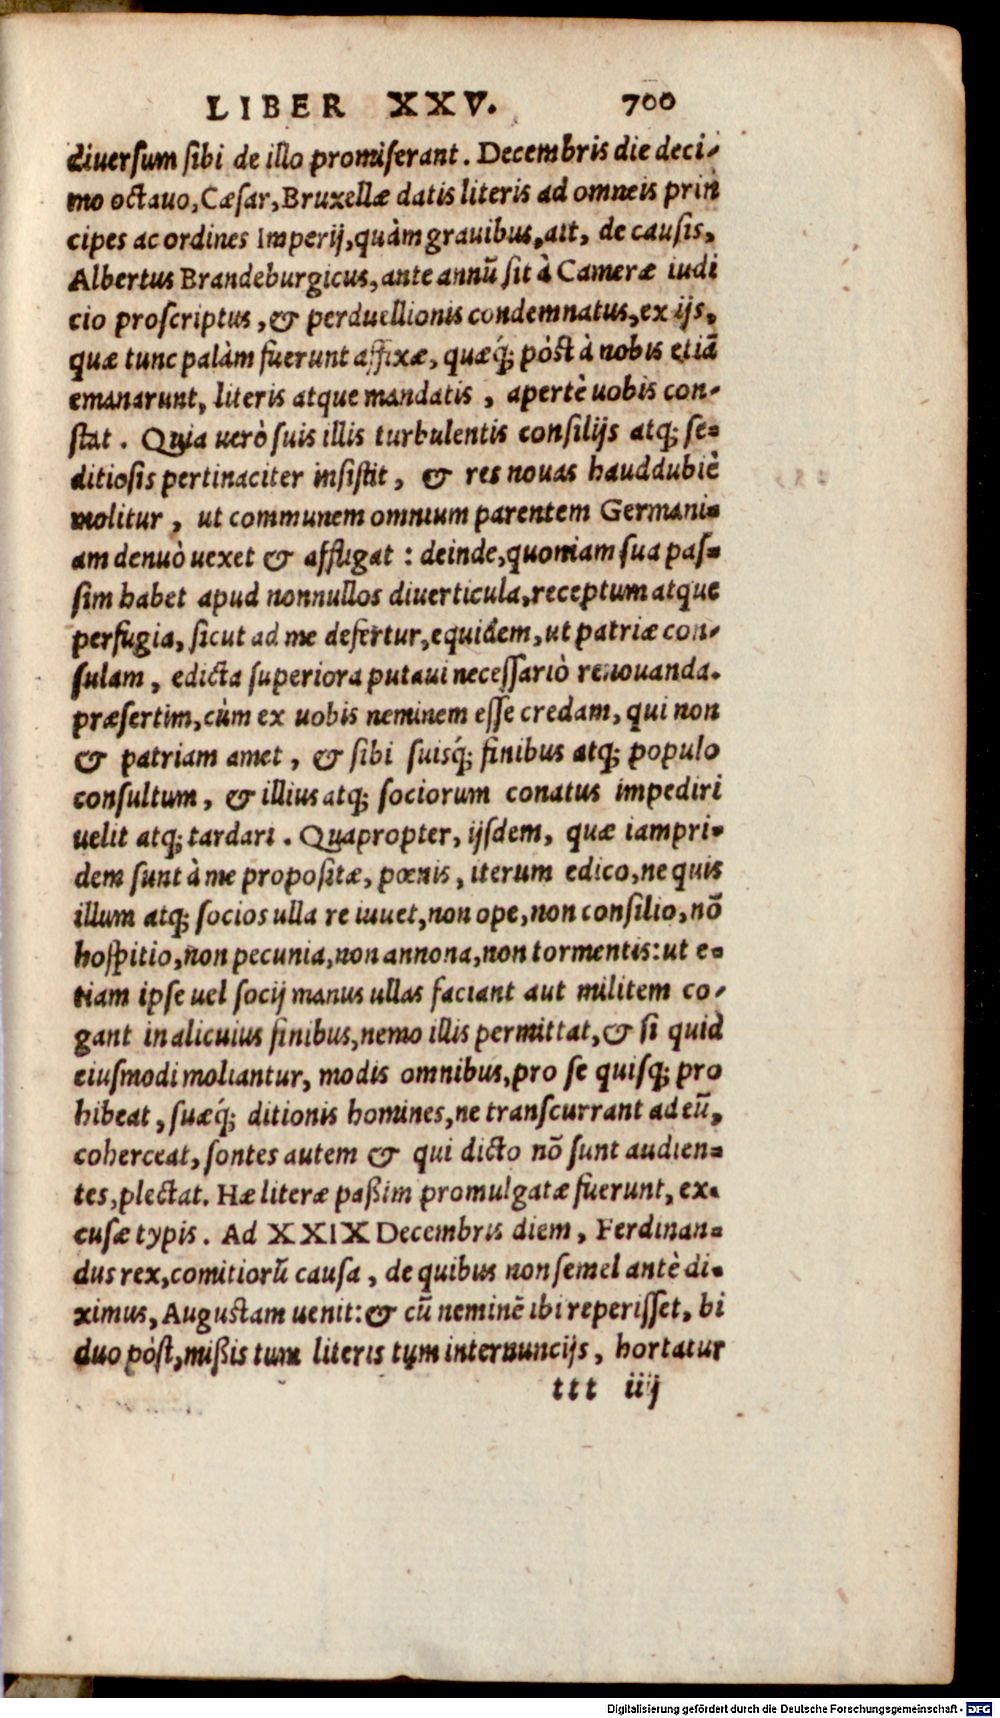 LIBER XXV. 700
diuersum sibi de illo promiserant. Decembris die deci-
mo octauo, Cæsar, Bruxellæ datis literis ad omneis prin
cipes ac ordines Imperij, quàm grauibus, ait, de causis,
Albertus Brandeburgicus, ante annũ sit à Cameræ iudi
cio proscriptus, & perduellionis condemnatus, ex ijs,
quæ tunc palàm fuerunt affixæ, quæq́; pòst à nobis etiã
emanarunt, literis atque mandatis, apertè uobis con-
stat. Quia uerò suis illis turbulentis consilijs atq; se-
ditiosis pertinaciter insistit, & res nouas hauddubiè
molitur, ut communem omnium parentem Germani-
am denuò uexet & affligat: deinde, quoniam sua pas-
sim habet apud nonnullos diuerticula, receptum atque
perfugia, sicut ad me defertur, equidem, ut patriæ con-
sulam, edicta superiora putaui necessariò renouanda.
præsertim, cùm ex uobis neminem esse credam, qui non
& patriam amet, & sibi suisq́; finibus atq; populo
consultum, & illius atq; sociorum conatus impediri
uelit atq; tardari. Quapropter, ijsdem, quæ iampri-
dem sunt à me propositæ, pœnis, iterum edico, ne quis
illum atq; socios ulla re iuuet, non ope, non consilio, nõ
hospitio, non pecunia, non annona, non tormentis: ut e-
tiam ipse uel socij manus ullas faciant aut militem co-
gant in alicuius finibus, nemo illis permittat, & si quid
eiusmodi moliantur, modis omnibus, pro se quisq; pro
hibeat, suæq́; ditionis homines, ne transcurrant ad eũ,
coherceat, sontes autem & qui dicto nõ sunt audien-
tes, plectat. Hæ literæ paßim promulgatæ fuerunt, ex-
cusæ typis. Ad XXIX Decembris diem, Ferdinan-
dus rex, comitiorũ causa, de quibus non semel antè di-
ximus, Augustam uenit: & cũ neminẽ ibi reperisset, bi
duo pòst, mißis tum literis tum internuncijs, hortatur
ttt iiij
Digitalisierung gefördert durch die Deutsche Forschungsgemeinschaft - DFG